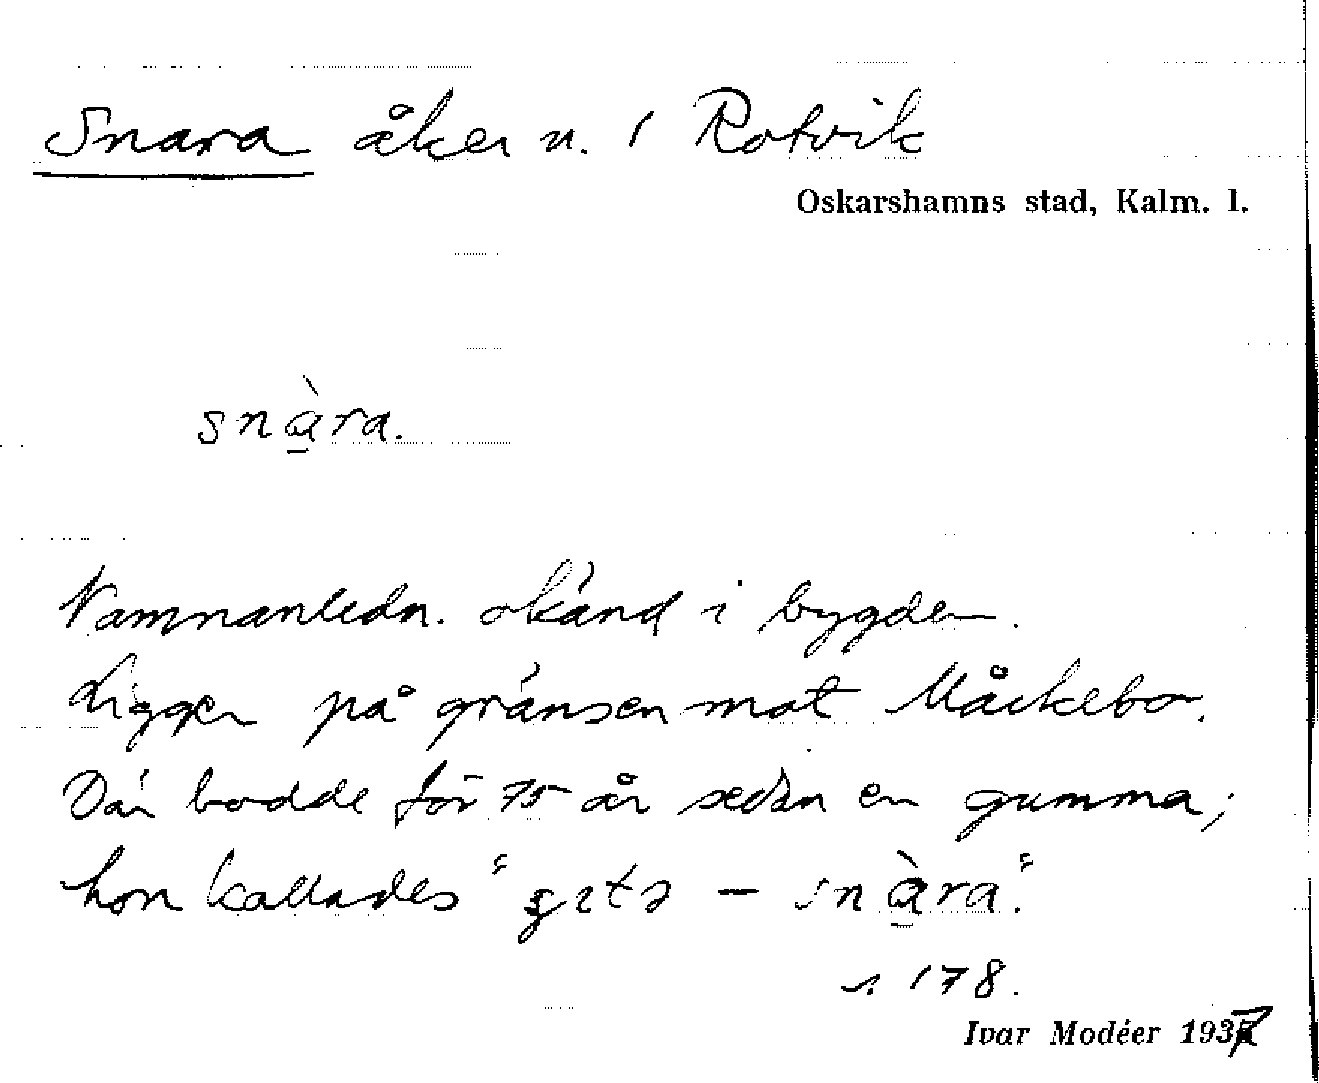 Snara åker n. 1 Rotvik
Oskarshamns stad, Kalm. l.
snàra.
Namnanledn. okänd i bygden.
Ligger på gränsen mot Måckebo.
Där bodde för 75 år sedan en gumma;
hon kallades " - snàra".
s. 178.
Ivar Modéer 1937